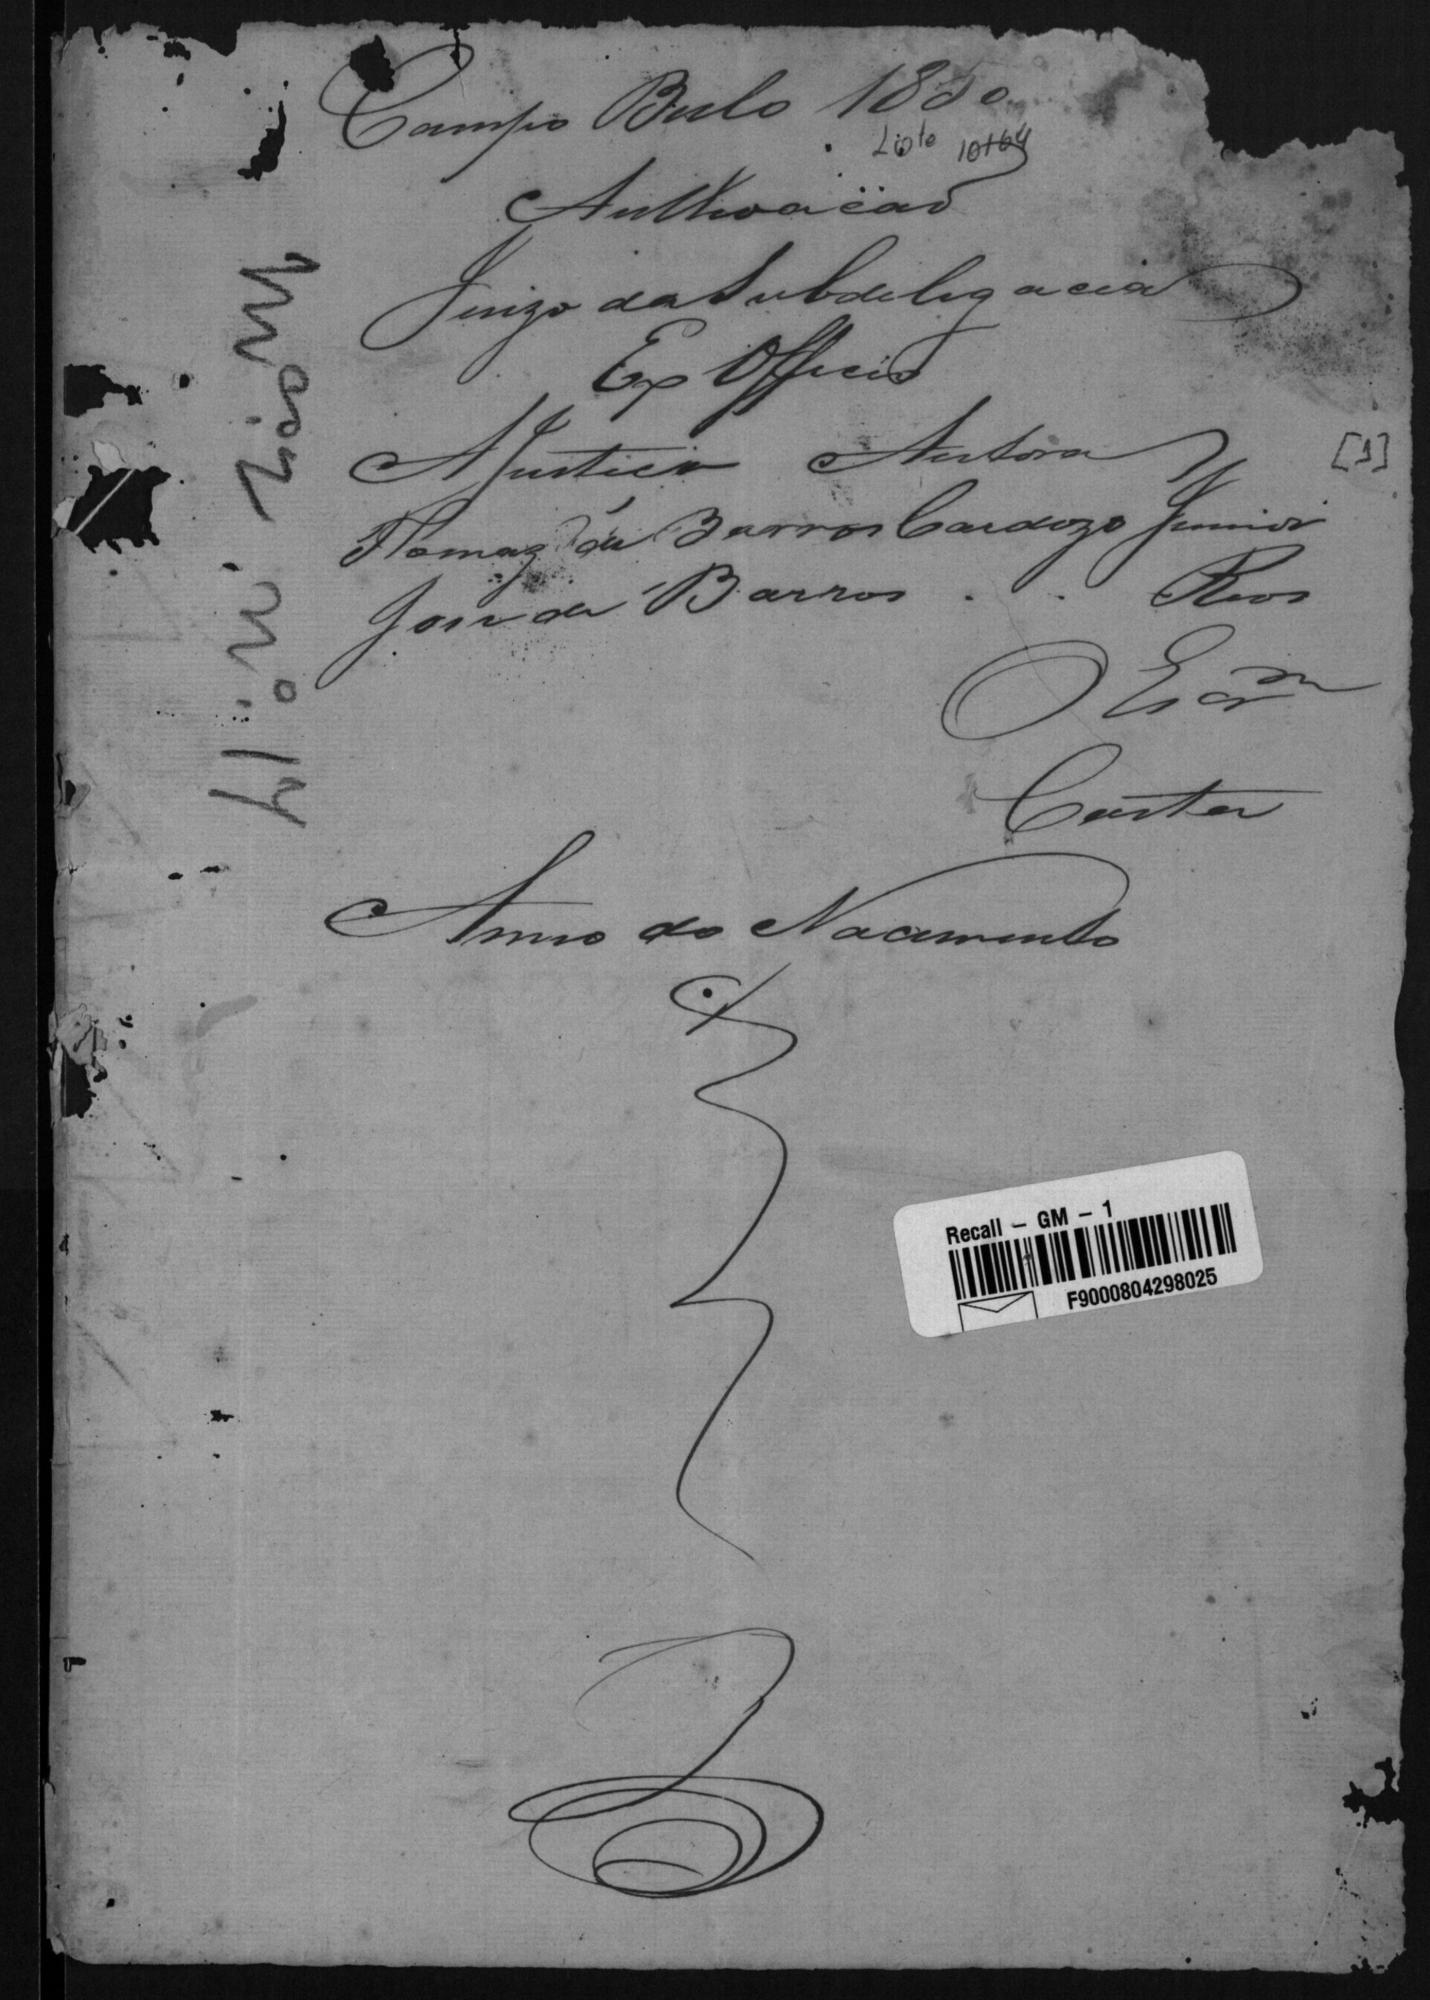 Campo Bello 1880
Authoação
Juizo da Subdelegacia
Ex Officio
A Justiça Autora
[1]
Thomaz de Barros Cardozo Junior
José de Barros . . Reos
O Escr.m
Costa
Anno do Nacimento
Maiz. n.º 14
Recall - GM - 1
F9000804298025